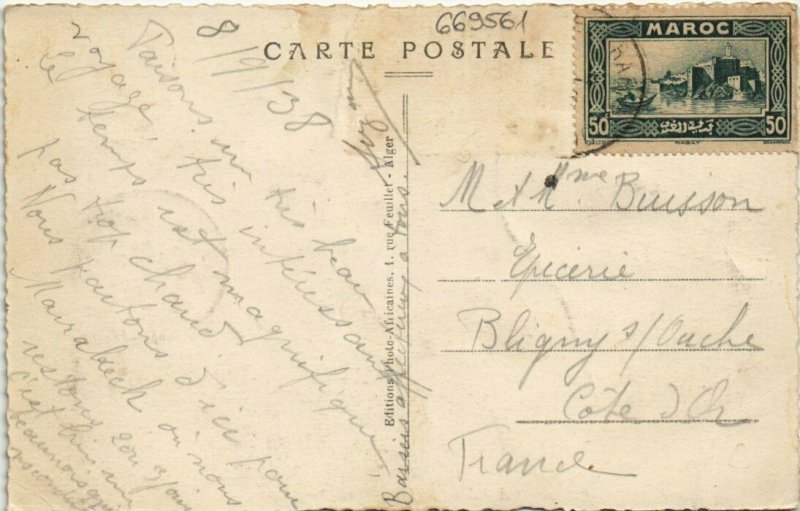 669561
CARTE POSTALE
MAROC
50
50
RABAT
8/9/38
Faisons un très beau
voyage, très intéressant
le temps est magnifique
pas trop chaud
Nous partons d'ici pour
Marrakech où nous
restons 2 ou 3 jours
c'est
Baisers affectueux à tous.
Editions Photo-Africaines, 1, rue Feuillet - Alger
M et Mme Buisson
Epicerie
Bligny s/Ouche
Côte d'Or
France